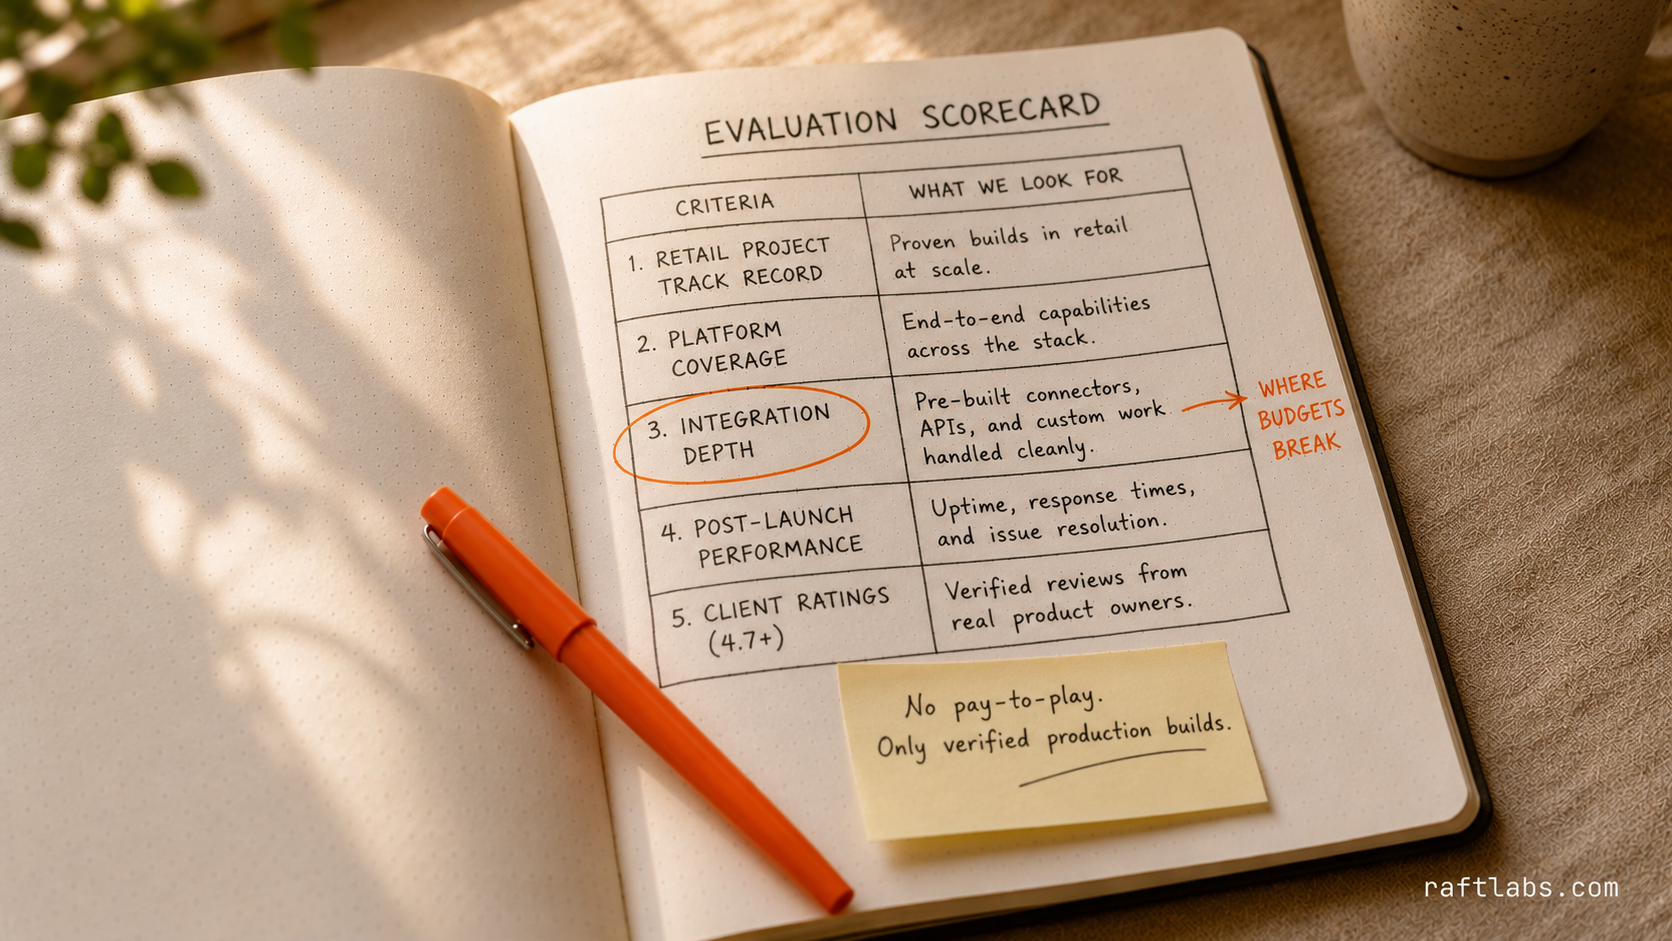 EVALUATION SCORECARD
CRITERIA
WHAT WE LOOK FOR
1. RETAIL PROJECT
TRACK RECORD
Proven builds in retail
at scale.
2. PLATFORM
COVERAGE
End-to-end capabilities
across the stack.
3. INTEGRATION
DEPTH
Pre-built connectors,
APIs, and custom work
handled cleanly.
WHERE
BUDGETS
BREAK
4. POST-LAUNCH
PERFORMANCE
Uptime, response times,
and issue resolution.
5. CLIENT RATINGS
(4.7+)
Verified reviews from
real product owners.
No pay-to-play.
Only verified production builds.
raftlabs.com